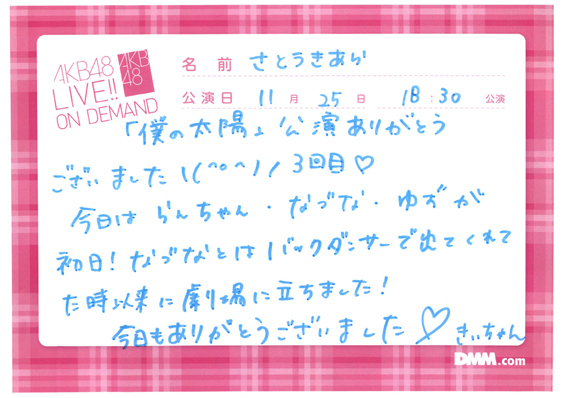 AKB48
LIVE!!
ON DEMAND
AKB
48
名前 さとうきあら
公演日 11月25日 18:30 公演
「僕の太陽」公演ありがとう
ございました\(^o^)/ 3回目♡
今日は らんちゃん・なづな・ゆずが
初日!なづなとはバックダンサーで出てくれて
た時以来に劇場に立ちました!
今日もありがとうございました♡きぃちゃん
DMM.com